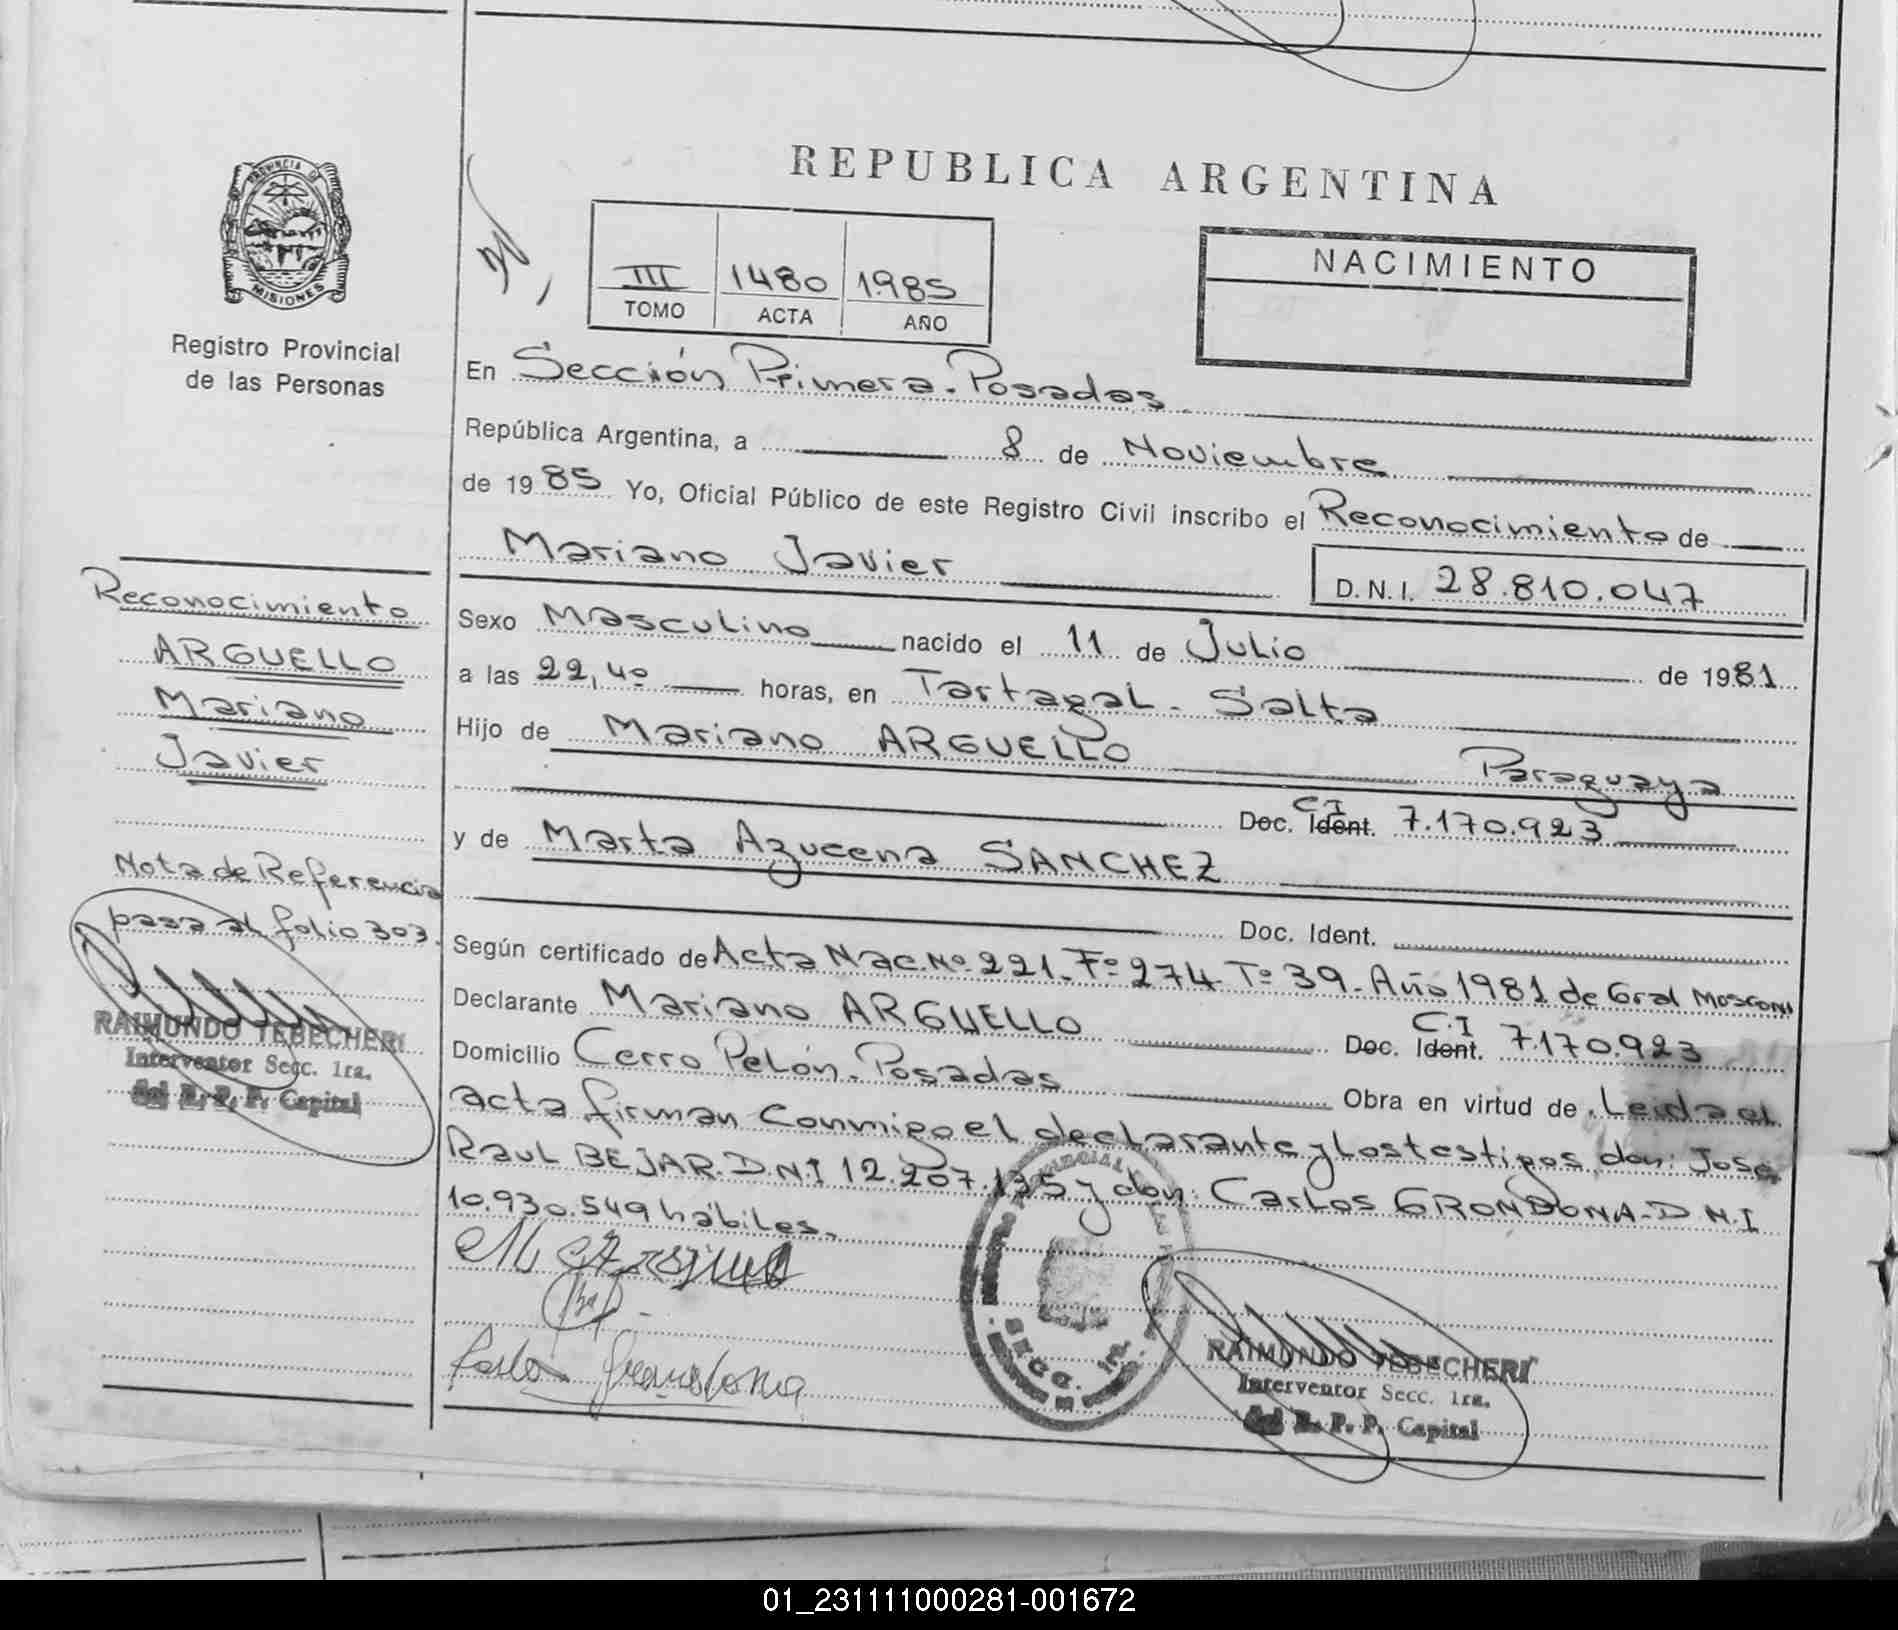 REPUBLICA ARGENTINA
PROVINCIA DE
MISIONES
Registro Provincial
de las Personas
III 1480 1985
TOMO ACTA AÑO
NACIMIENTO
En Sección Primera. Posadas
República Argentina, a 8 de Noviembre
de 1985 Yo, Oficial Público de este Registro Civil inscribo el Reconocimiento de
Mariano Javier
D.N.I. 28.810.047
Sexo Masculino nacido el 11 de Julio de 1981
a las 22,40 horas, en Tartagal - Salta
Hijo de Mariano ARGUELLO Paraguaya
C.I
Doc. Ident. 7.170.923
y de Marta Azucena SANCHEZ
Doc. Ident.
Según certificado de Acta Nac. Nº 221. Fº 274 Tº 39. Año 1981 de Gral Mosconi
Declarante Mariano ARGUELLO
C.I
Doc. Ident. 7.170.923
Domicilio Cerro Pelón. Posadas Obra en virtud de Leida el
acta firman conmigo el declarante y los testigos, don: José
Raul BEJAR. D.N.I 12.207.175 y don: Carlos GRONDONA - D.N.I
10.930.549 hábiles.
Carlos Grondona
SECC. 1ra.
RAIMUNDO TEBECHERI
Interventor Secc. 1ra.
del R. P. P. Capital
Reconocimiento
ARGUELLO
Mariano
Javier
Nota de Referencia
pasa al folio 303.
RAIMUNDO TEBECHERI
Interventor Secc. 1ra.
del R. P. P. Capital
01_231111000281-001672